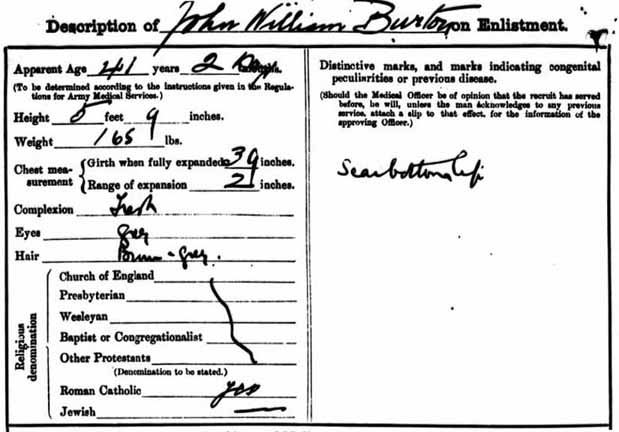 Description of John William Burton on Enlistment.
Apparent Age 41 years 2 Days months.
(To be determined according to the instructions given in the Regula-
tions for Army Medical Services.)
Height 5 feet 9 inches.
Weight 165 lbs.
Chest mea-
surement
Girth when fully expanded 39 inches.
Range of expansion 2 inches.
Complexion Fresh
Eyes grey
Hair Brown - grey.
Religious
denomination
Church of England
Presbyterian
Wesleyan
Baptist or Congregationalist
Other Protestants
(Denomination to be stated.)
Roman Catholic yes
Jewish —
Distinctive marks, and marks indicating congenital
peculiarities or previous disease.
(Should the Medical Officer be of opinion that the recruit has served
before, he will, unless the man acknowledges to any previous
service, attach a slip to that effect, for the information of the
approving Officer.)
Scar bottom lip